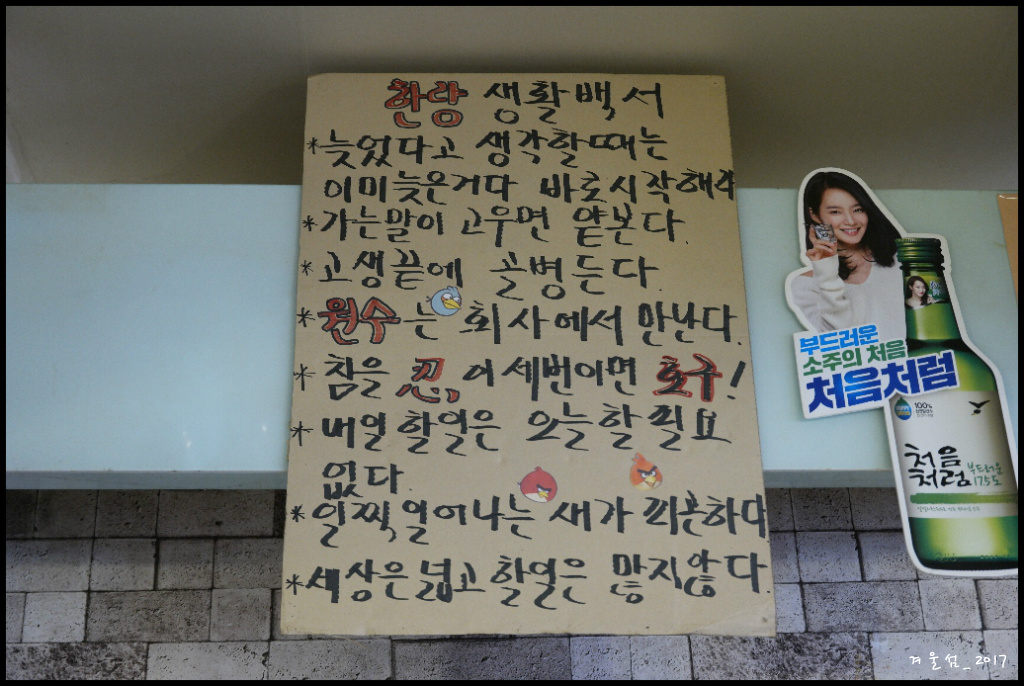 한량 생활백서
*늦었다고 생각할때는
이미늦은거다 바로시작해라
*가는말이 고우면 얕본다.
*고생끝에 골병든다.
*원수는 회사에서 만난다.
*참을 忍이 세번이면 호구!
*내일 할일은 오늘할 필요
없다.
*일찍 일어나는 새가 피곤하다
*세상은 넓고 할일은 많지않다.
부드러운
소주의 처음
처음처럼
100%
처음
처럼
부드러운
17.5도
겨울섬_2017